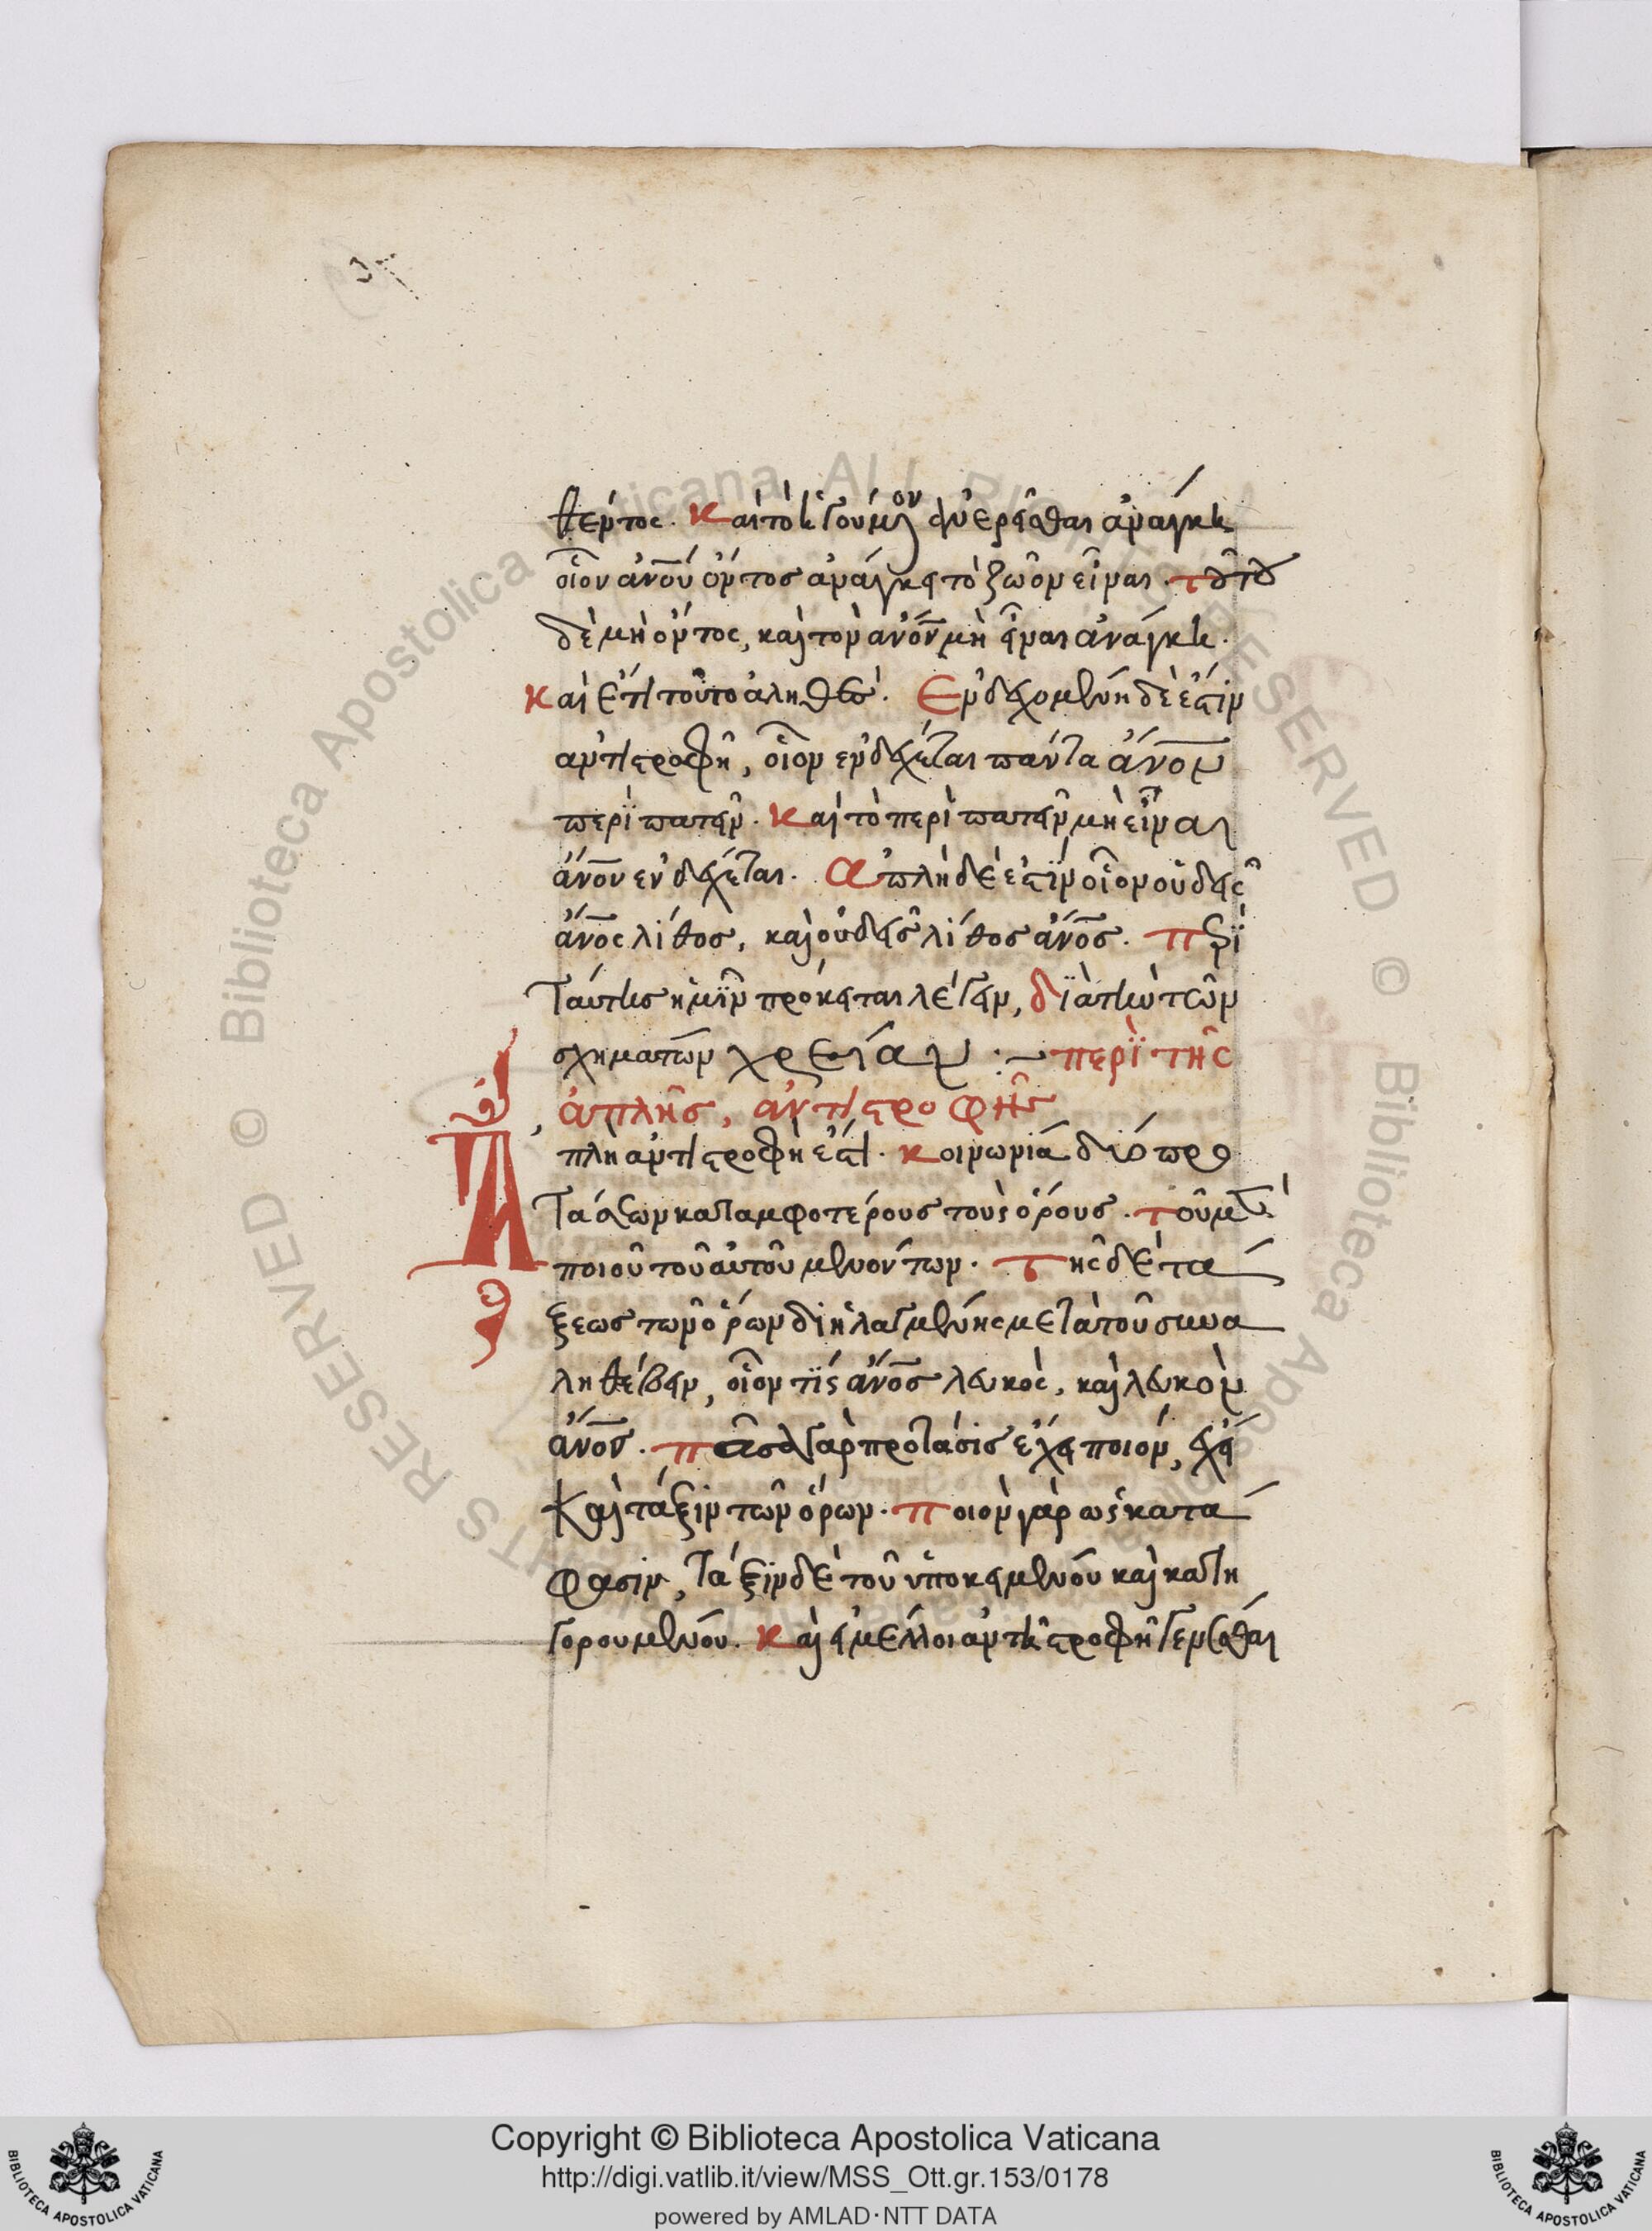 θέντος. Καὶ τὸ ἡγούμενον ἀναιρεῖσθαι ἀνάγκη
οἷον ἀνου ὄντος ἀνάγκη τὸ ζῶον εἶναι. τούτου
δὲ μὴ ὄντος, καὶ τὸν ἀνον μὴ εἶναι ἀνάγκη.
καὶ ἔτι τοῦτο ἀληθὲς. Ἐνδεχομένη δὲ ἐστὶν
ἀντιστροφὴ, οἷον ἐνδέχεται πάντα ἄνον
περϊπατεῖν. Καὶ τὸ περὶπατεῖν μὴ εἶναι
ἄνον ἐνδέχεται. Ἁπλὴ δὲ ἐστϊν οἷον οὐδεὶς
ἄνος λίθος, καὶ οὐδεὶς λίθος ἄνος. Περὶ
ταύτης ἡμῖν πρόκειται λέγειν, διὰ τὴν τῶν
σχημάτων χρείαν :~ περὶ τῆς
ἁπλῆς, ἀντιστροφῆς
Ἁπλὴ ἀντιστροφὴ ἐστὶ. κοινωνία δύο προ
τάσεων κατ' ἀμφοτέρους τοὺς ὅρους. τοῦ μὲν
ποιοῦ τοῦ αὐτοῦ μένοντος. Τῆς δὲ τά
ξεως τῶν ὅρων διηλαγμένης μετὰ τοῦ συνα
ληθεύειν, οἷον τὶς ἄνος λευκὸς, καὶ λευκὸν
ἄνον. πᾶσα γὰρ πρότασις ἔχει ποιὸν, ἔχει
καὶ τάξιν τῶν ὅρων. ποιὸν γὰρ ὡς κατά
φασιν, τάξιν δὲ τοῦ ὑποκειμένου καὶ κατη
γορουμένου. Καὶ εἰ μέλλοι ἀντιστροφὴ γενέσθαι
Copyright © Biblioteca Apostolica Vaticana
http://digi.vatlib.it/view/MSS_Ott.gr.153/0178
powered by AMLAD·NTT DATA